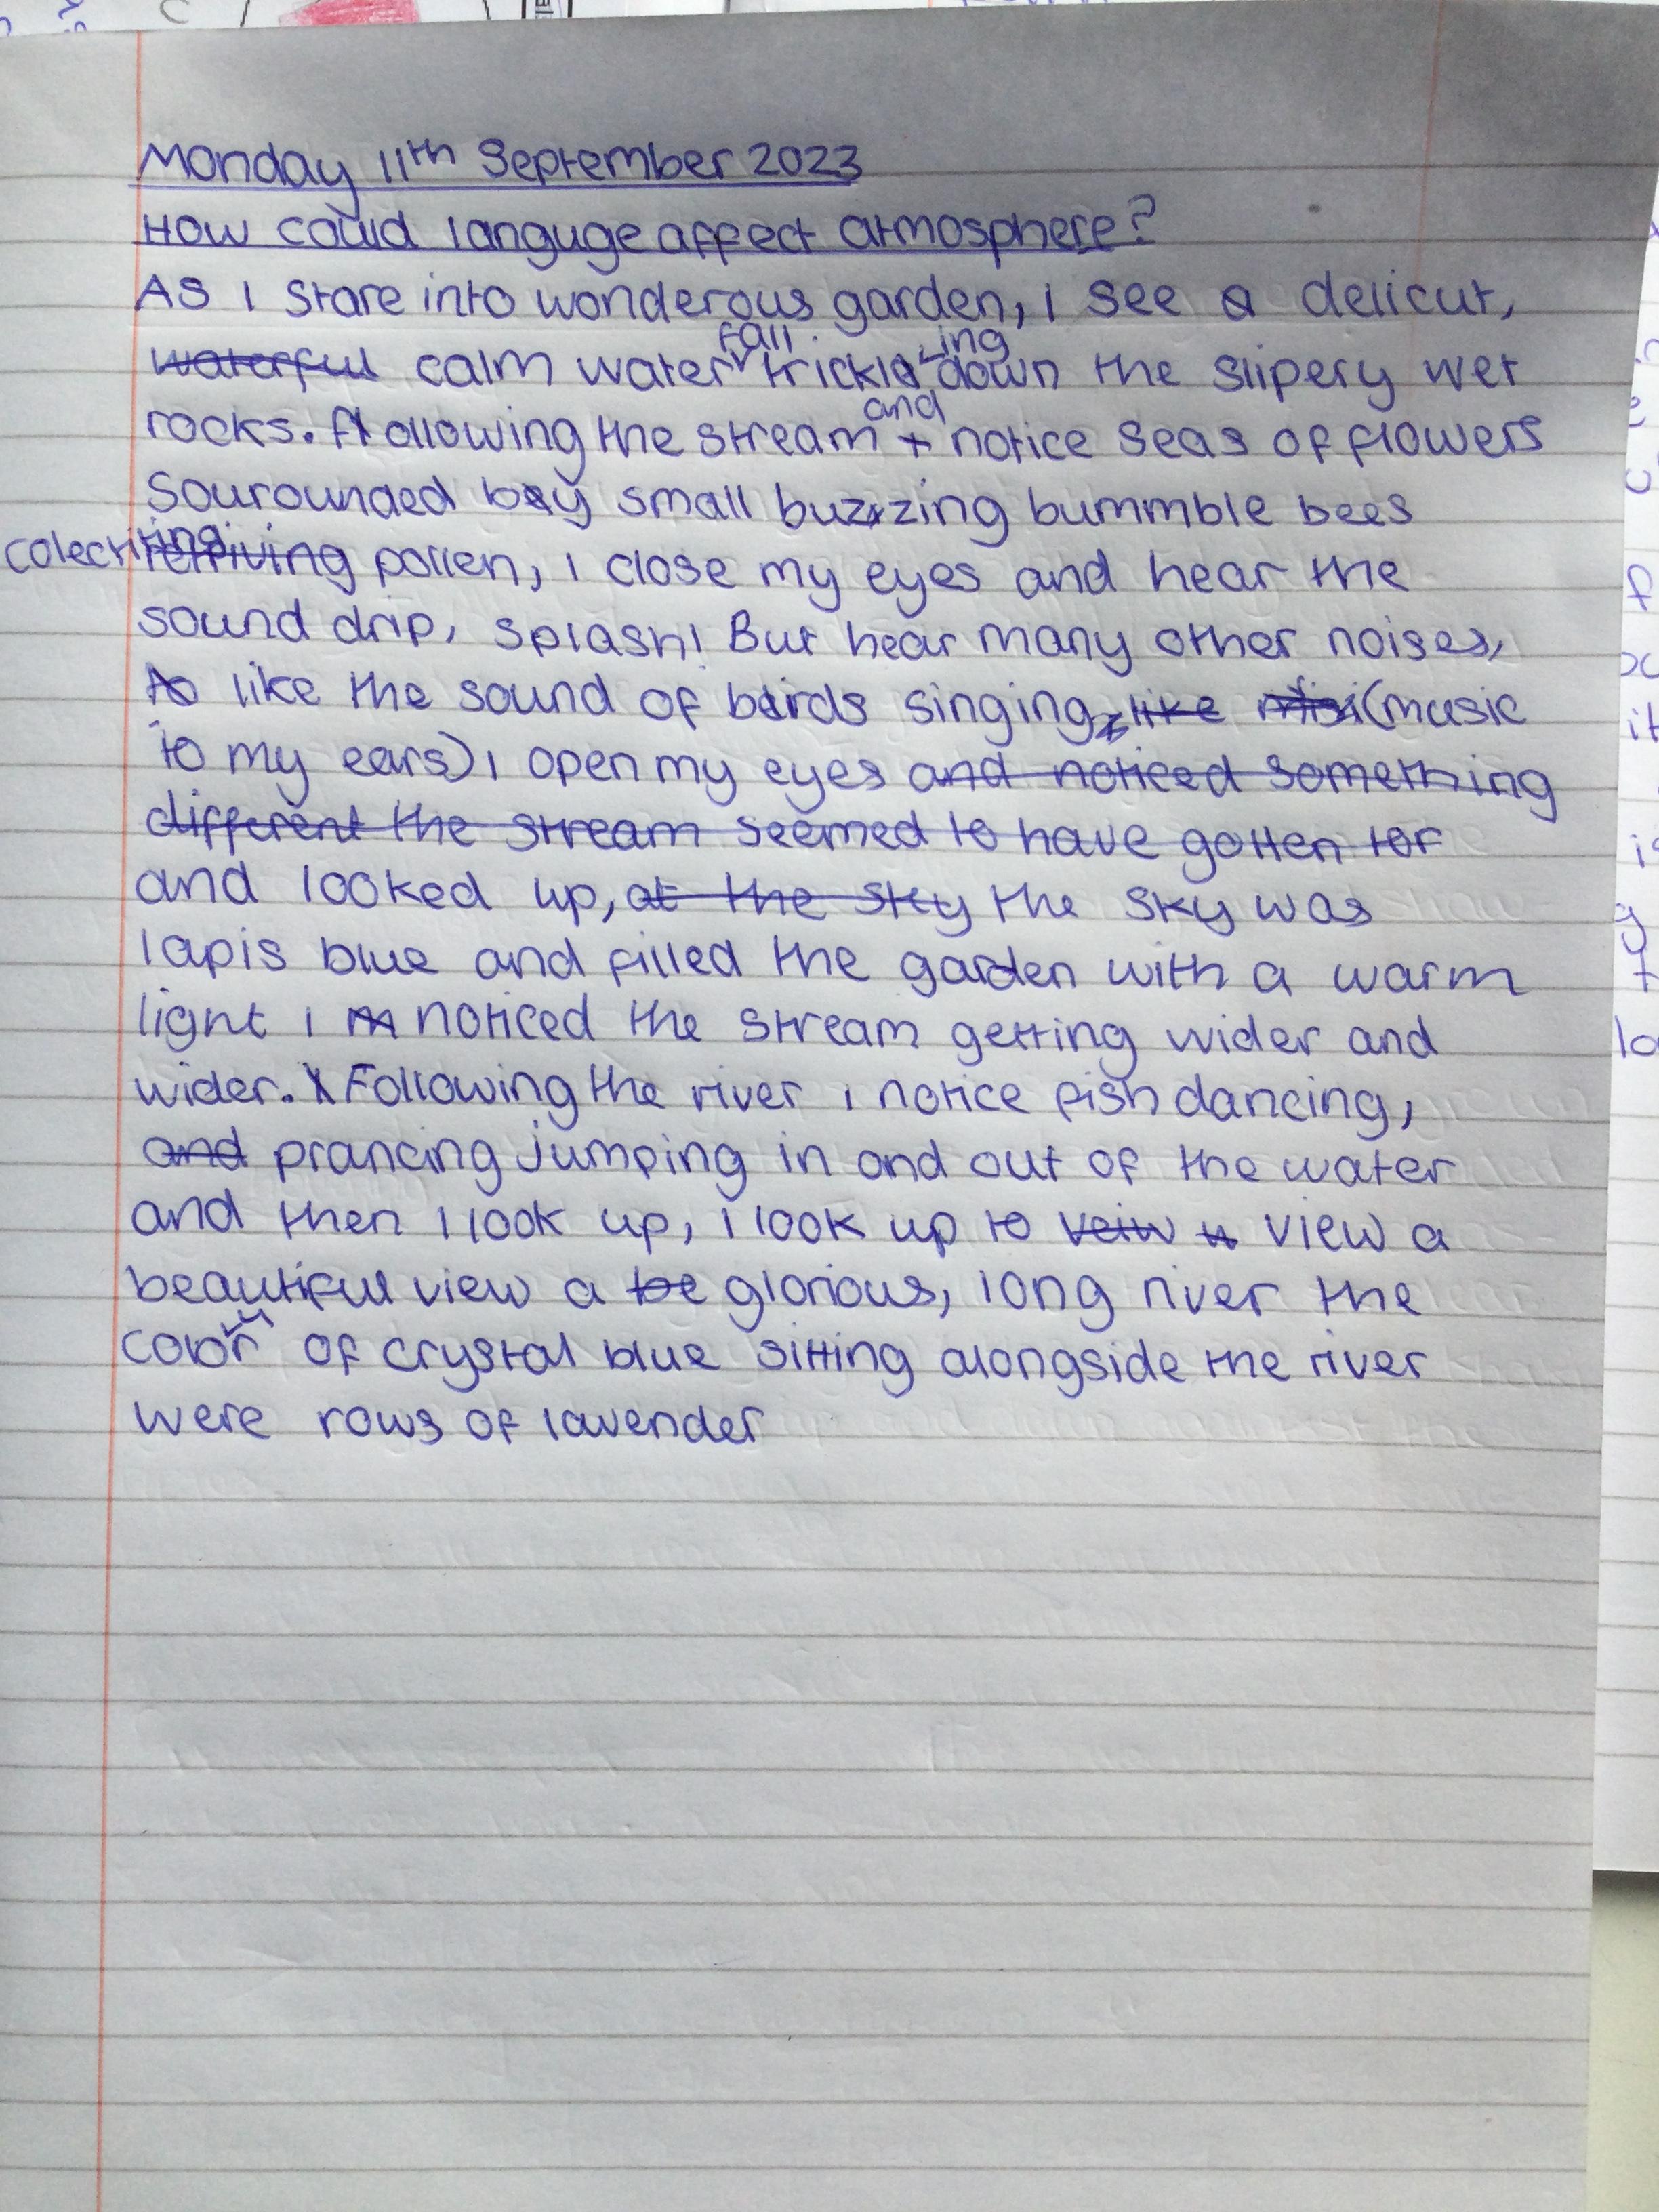 Monday 11th September 2023
How could languge affect atmosphere?
As I stare into wonderous garden, I see a delicut,
waterful calm waterfall trickling down the slipery wet
rocks. Following the stream and notice seas of flowers
Sourounded by small buzzing bummble bees
colecting pollen, I close my eyes and hear the
sound drip, splash! But hear many other noises,
to like the sound of birds singing, like (music
to my ears) I open my eyes and noticed something
different the stream seemed to have gotten for
and looked up, at the sky the sky was
lapis blue and filled the garden with a warm
light I noticed the stream getting wider and
wider. Following the river I notice fish dancing,
and prancing jumping in and out of the water
and then I look up, I look up to veiw view a
beautiful view a be glorious, long river the
colour of crystal blue sitting alongside the river
were rows of lavender